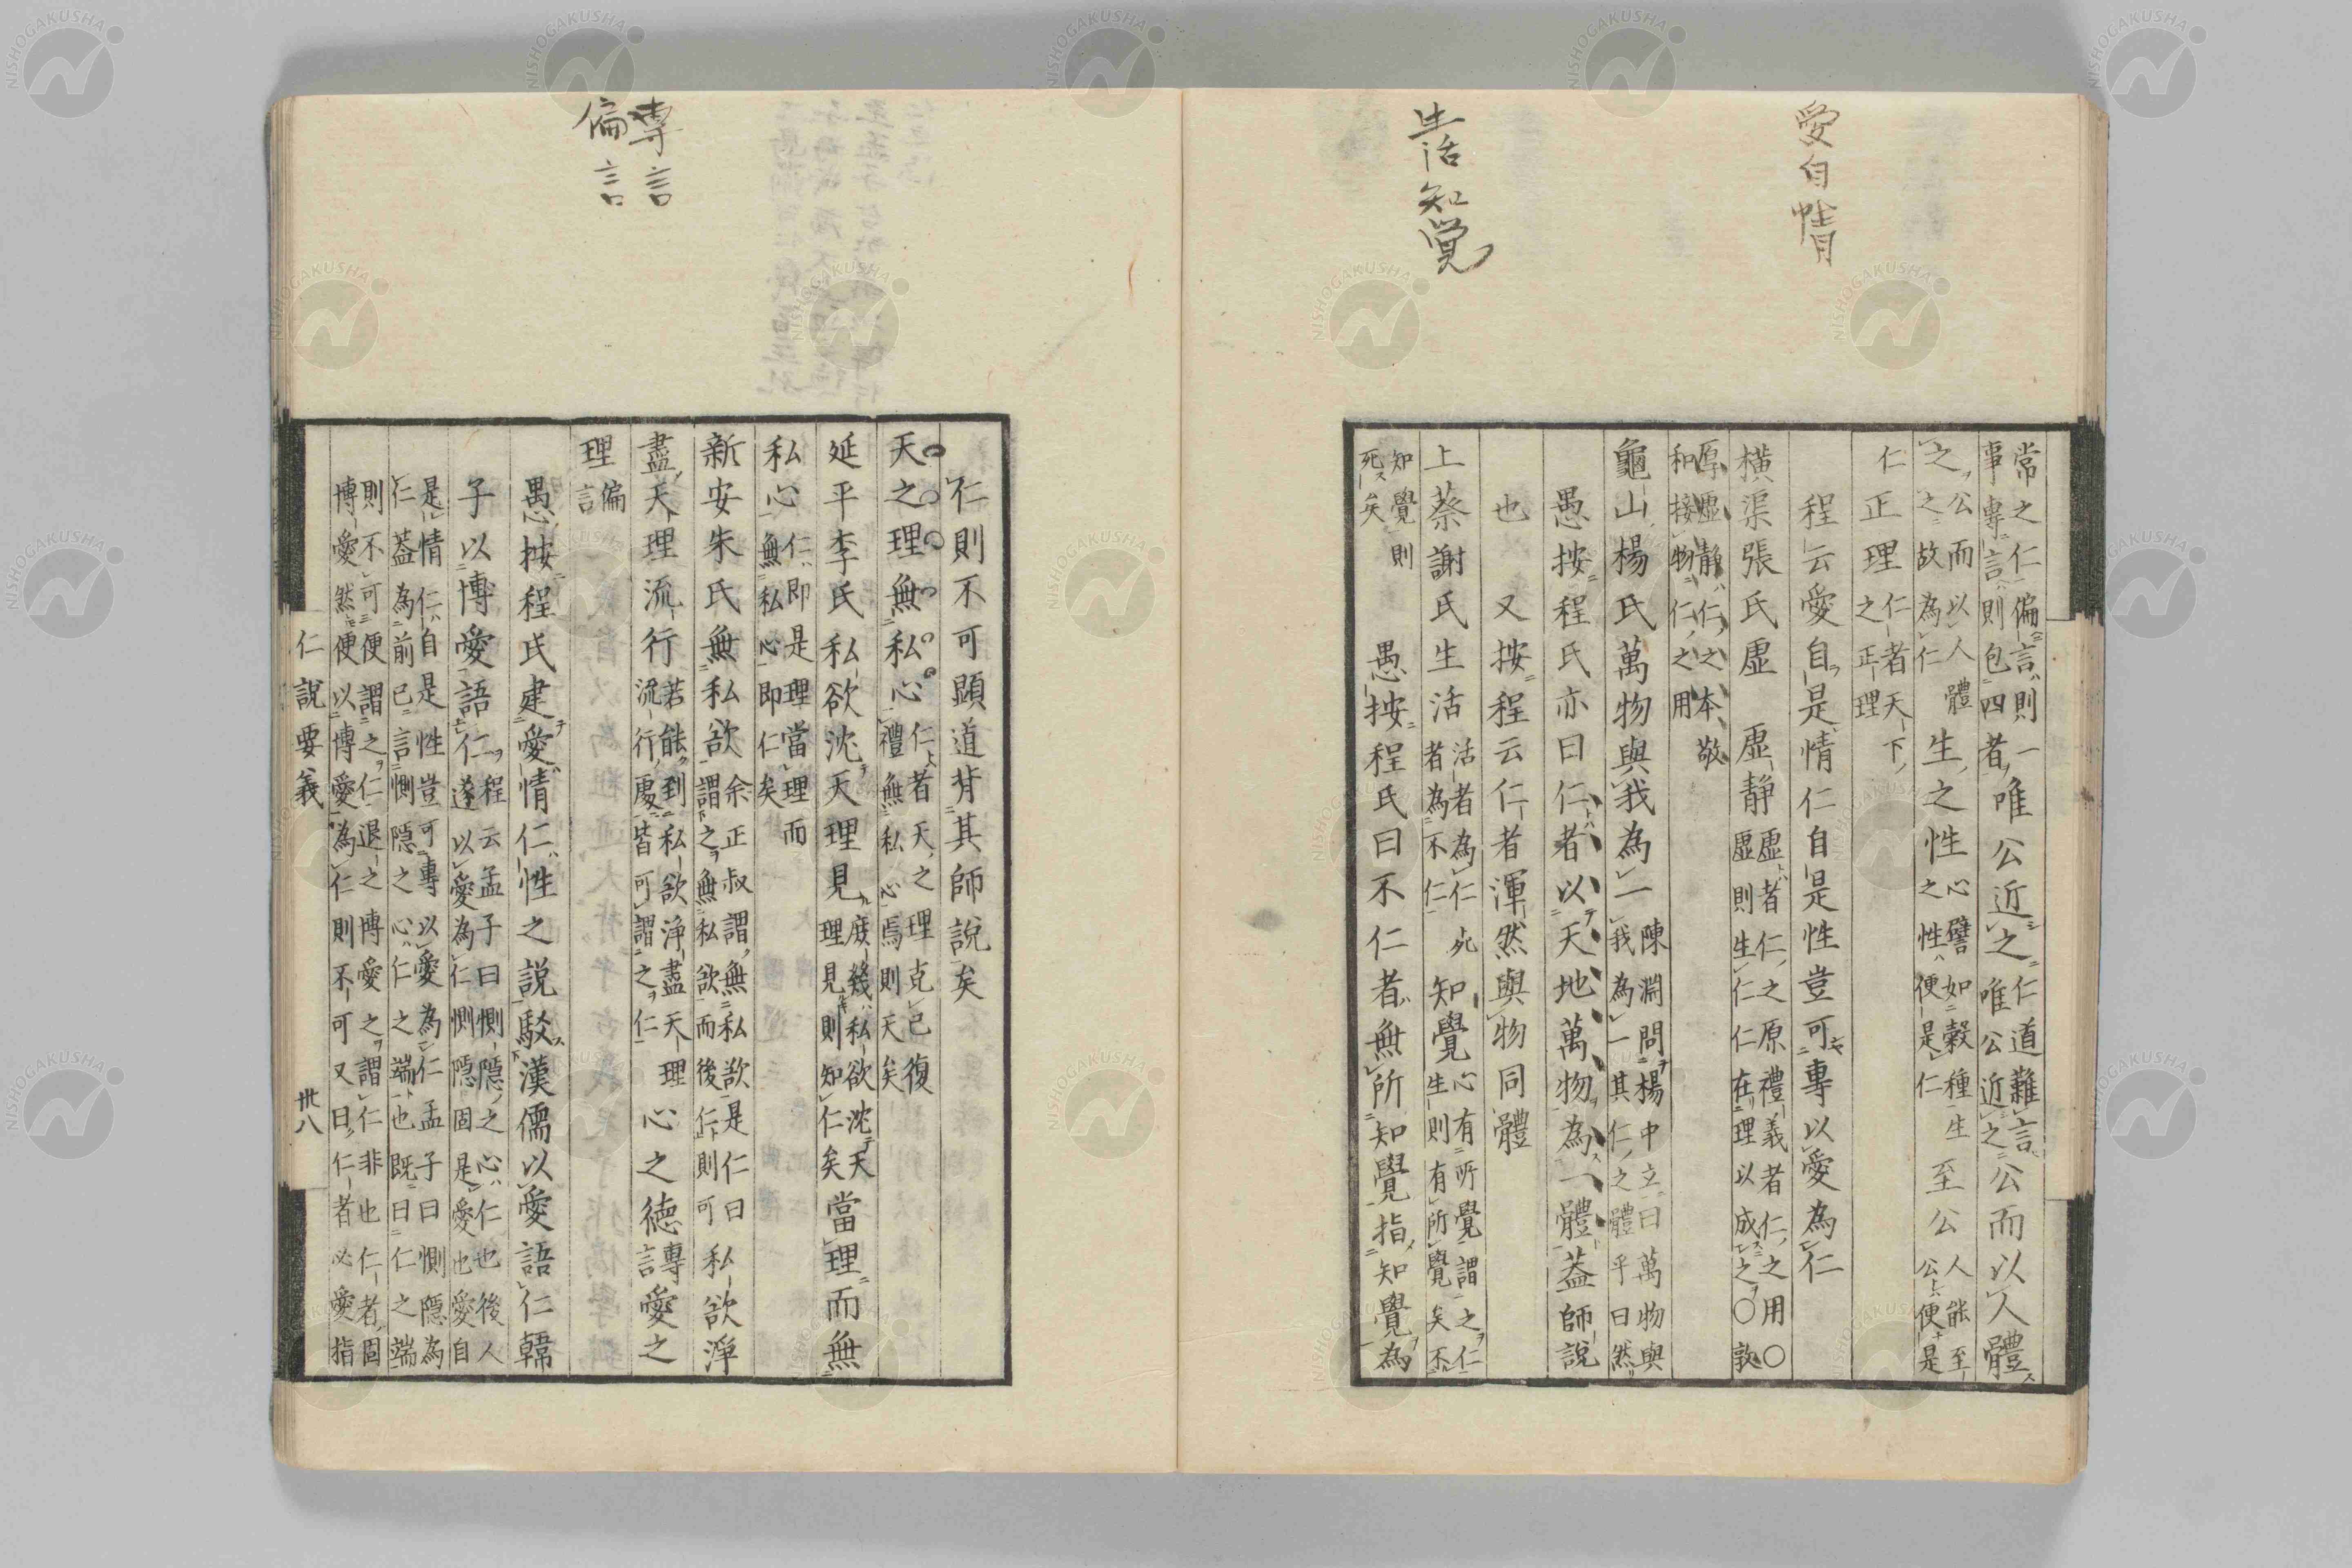 愛自情
生活知覺
常之仁偏言則一
事專言則包四者唯公近之仁道難言唯公近之公而以人體
之公而以人體之故為仁生之性心譬如穀種生之性便是仁至公人能至公便是
仁正理仁者天下之正理
程云愛自是情仁自是性豈可專以愛為仁
橫渠張氏虛　虛靜虛者仁之原禮義者仁之用〇虛則生仁仁在理以成之〇敦
厚虛靜仁之本敬和接物仁之用
龜山楊氏萬物與我為一陳淵問楊中立曰萬物與我為一其仁之體乎曰然
愚按程氏亦曰仁者以天地萬物為一體蓋師說
也　又按程云仁者渾然與物同體
上蔡謝氏生活活者為仁死者為不仁知覺心有所覺謂之仁生則有所覺矣不
知覺則死矣　愚按程氏曰不仁者無所知覺指知覺為
專言
偏言
仁則不可顯道背其師說矣
天之理無私心仁者天之理克己復禮無私心焉則天矣
延平李氏私欲沈天理見庶幾私欲沈天理見則知仁矣當理而無
私心仁即是理當理而無私心即仁矣
新安朱氏無私欲余正叔謂無私欲是仁曰謂之無私欲而後仁則可私欲淨
盡天理流行若能到私欲淨盡天理流行處皆可謂之仁心之德專言愛之
理偏言
愚按程氏建愛情仁性之說駁漢儒以愛語仁韓
子以博愛語仁程云孟子曰惻隱之心仁也後人遂以愛為仁惻隱固是愛也愛自
是情仁自是性豈可專以愛為仁孟子曰惻隱為仁蓋為前已言惻隱之心仁之端也既曰仁之端
則不可便謂之仁退之博愛之謂仁非也仁者固博愛然便以博愛為仁則不可又曰仁者必愛指
仁說要義
卅八